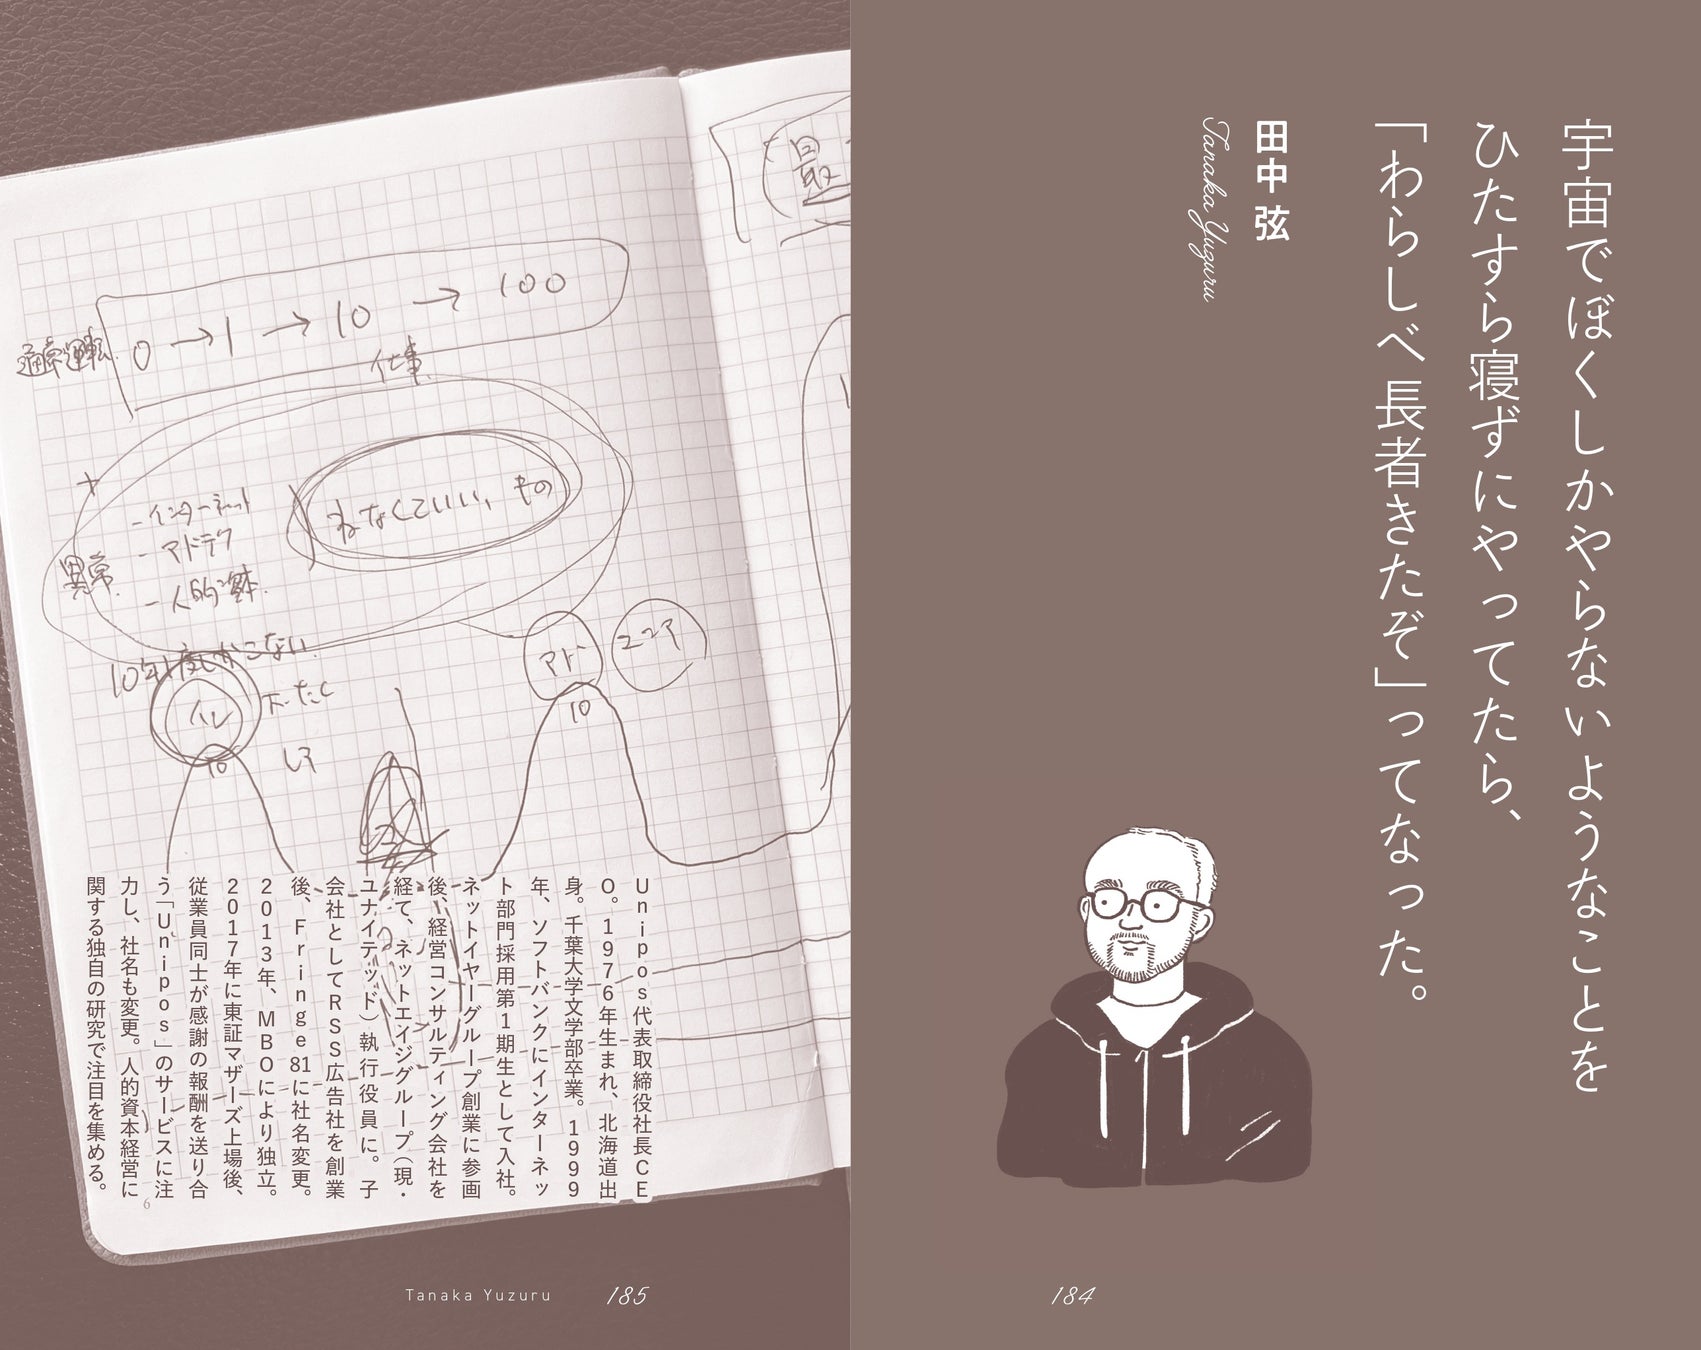 宇宙でぼくしかやらないようなことを
ひたすら寝ずにやってたら、
「わらしべ長者きたぞ」ってなった。
田中 弦
Tanaka Yuzuru
184
最
0 → 1 → 10 → 100
通常運転
仕事
+
異常
- インターネット
- アドテク
- 人的資本
ねなくていい、もの
10年1度しかこない
イン
10
アド
10
ユニア
Unipos代表取締役社長CE
O。1976年生まれ、北海道出
身。千葉大学文学部卒業。1999
年、ソフトバンクにインターネッ
ト部門採用第1期生として入社。
ネットイヤーグループ創業に参画
後、経営コンサルティング会社を
経て、ネットエイジグループ（現・
ユナイテッド）執行役員に。子
会社としてRSS広告社を創業
後、Fringe81に社名変更。
2013年、MBOにより独立。
2017年に東証マザーズ上場後、
従業員同士が感謝の報酬を送り合
う「Unipos」のサービスに注
力し、社名も変更。人的資本経営に
関する独自の研究で注目を集める。
6
Tanaka Yuzuru
185